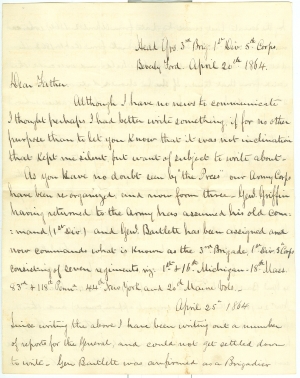 Head Qrs. 3d Brig. 1st Div. 5th Corps.
Beverly Ford. April 20th 1864.
Dear Father
Although I have no news to communicate
I thought perhaps I had better write something if for no other
purpose than to let you know that it was not inclination
that kept me silent but want of subject to write about-
As you have no doubt seen by "the Press" our Army Corps
have been reorganized and now form three- Genl Griffin
having returned to the Army has assumed his old Com-
=mand (1st Div) and Genl Bartlett has been assigned and
now commands what is known as the 3rd Brigade, 1st Div. 5th Corps
consisting of seven regiments viz: 1st & 16th Michigan- 18th Mass.
83d & 118th Penn'. 44th New York and 20th Maine Vols.-
April 25th 1864
Since writing the above I have been writing out a number
of reports for the General, and could not get settled down
to write- Gen Bartlett was confirmed as a Brigadier